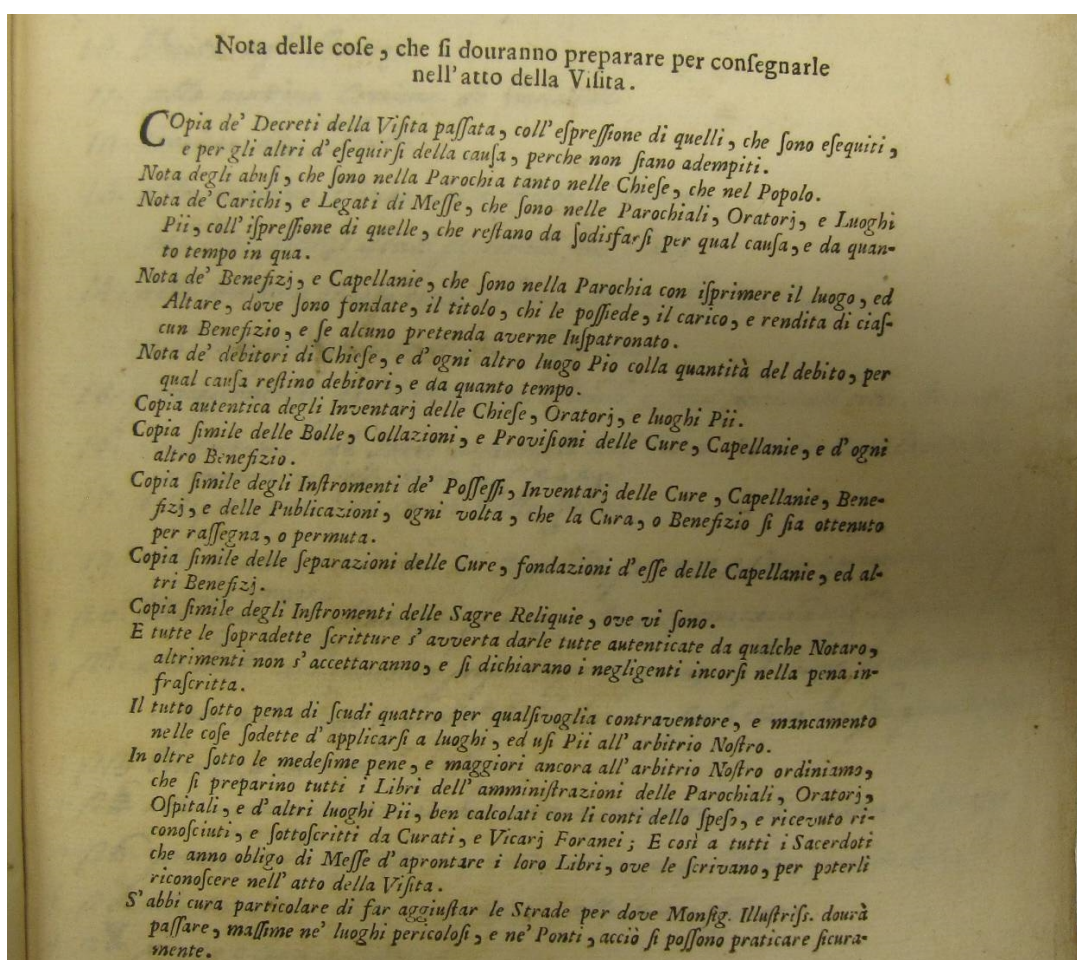 Nota delle coſe, che ſi douranno preparare per conſegnarle
nell'atto della Viſita.
COpia de' Decreti della Viſita paſſata, coll'eſpreſſione di quelli, che ſono eſequiti,
e per gli altri d'eſequirſi della cauſa, perche non ſiano adempiti.
Nota degli abuſi, che ſono nella Parochia tanto nelle Chieſe, che nel Popolo.
Nota de' Carichi, e Legati di Meſſe, che ſono nelle Parochiali, Oratorj, e Luoghi
Pii, coll'iſpreſſione di quelle, che reſtano da ſodisfarſi per qual cauſa, e da quan-
to tempo in qua.
Nota de' Benefizj, e Capellanie, che ſono nella Parochia con iſprimere il luogo, ed
Altare, dove ſono fondate, il titolo, chi le poſſiede, il carico, e rendita di ciaſ-
cun Benefizio, e ſe alcuno pretenda averne Iuſpatronato.
Nota de' debitori di Chieſe, e d'ogni altro luogo Pio colla quantità del debito, per
qual cauſa reſtino debitori, e da quanto tempo.
Copia autentica degli Inventarj delle Chieſe, Oratorj, e luoghi Pii.
Copia ſimile delle Bolle, Collazioni, e Proviſioni delle Cure, Capellanie, e d'ogni
altro Benefizio.
Copia ſimile degli Inſtromenti de' Poſſeſſi, Inventarj delle Cure, Capellanie, Bene-
fizj, e delle Publicazioni, ogni volta, che la Cura, o Benefizio ſi ſia ottenuto
per raſſegna, o permuta.
Copia ſimile delle ſeparazioni delle Cure, fondazioni d'eſſe delle Capellanie, ed al-
tri Benefizj.
Copia ſimile degli Inſtromenti delle Sagre Reliquie, ove vi ſono.
E tutte le ſopradette ſcritture s'avverta darle tutte autenticate da qualche Notaro,
altrimenti non s'accettaranno, e ſi dichiarano i negligenti incorſi nella pena in-
fraſcritta.
Il tutto ſotto pena di ſcudi quattro per qualſivoglia contraventore, e mancamento
nelle coſe ſodette d'applicarſi a luoghi, ed uſi Pii all'arbitrio Noſtro.
In oltre ſotto le medeſime pene, e maggiori ancora all'arbitrio Noſtro ordiniamo,
che ſi preparino tutti i Libri dell'amminiſtrazioni delle Parochiali, Oratorj,
Oſpitali, e d'altri luoghi Pii, ben calcolati con li conti dello ſpeſo, e ricevuto ri-
conoſciuti, e ſottoſcritti da Curati, e Vicarj Foranei; E così a tutti i Sacerdoti
che anno obligo di Meſſe d'aprontare i loro Libri, ove le ſcrivano, per poterli
riconoſcere nell'atto della Viſita.
S'abbi cura particolare di far aggiuſtar le Strade per dove Monſig. Illuſtriſs. dourà
paſſare, maſſime ne' luoghi pericoloſi, e ne' Ponti, acciò ſi poſſono praticare ſicura-
mente.